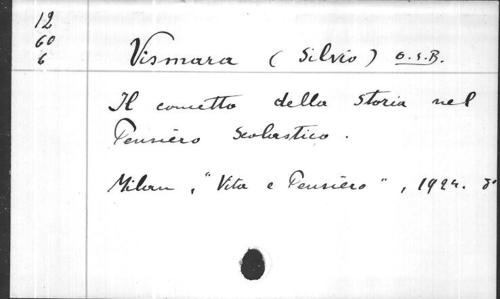 12
60
6
Vismara (Silvio) O.S.B.
Il concetto della Storia nel
Pensiero Scolastico.
Milan, "Vita e Pensiero", 1924. 8°